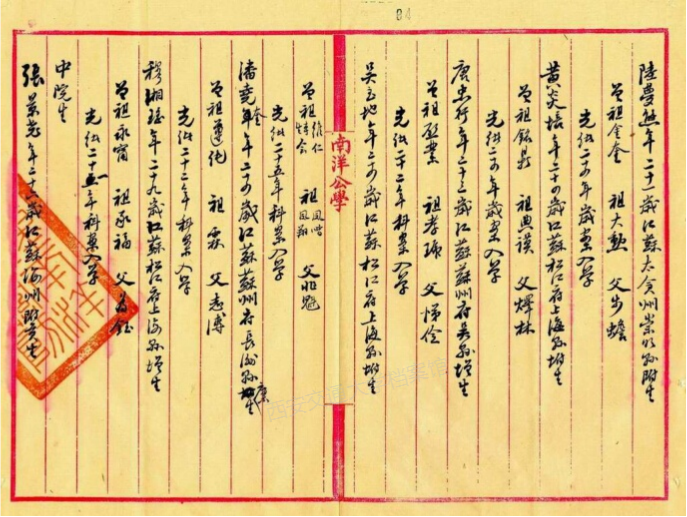 84
陸夢熊年二十一歲江蘇太倉州崇明縣附生
曾祖金奎 祖大勲 父步蟾
光緒二十四年歲案入學
黃炎培年二十四歲江蘇松江府上海縣附生
曾祖銘鼎 祖典謨 父燡林
光緒二四年歲案入學
唐忠行年二十三歲江蘇蘇州府吳縣增生
曾祖 祖孝 父
光緒二十二年歲案入學
吳 地年二四歲江蘇松江府上海縣附生
曾祖維仁 祖鳳喈 父兆魁
光緒二十五年科案入學
南洋公學
潘堯奎年二十四歲江蘇蘇州府長洲縣 生
曾祖遵 祖霖 父志溥
光緒二十二年科案入學
穆湘瑤年二十九歲江蘇松江府上海縣增生
曾祖永甯 祖承福 父
光緒二十五年科案入學
中院生
張景堯年二十一歲江蘇海州附貢生
西安交通大學檔案館